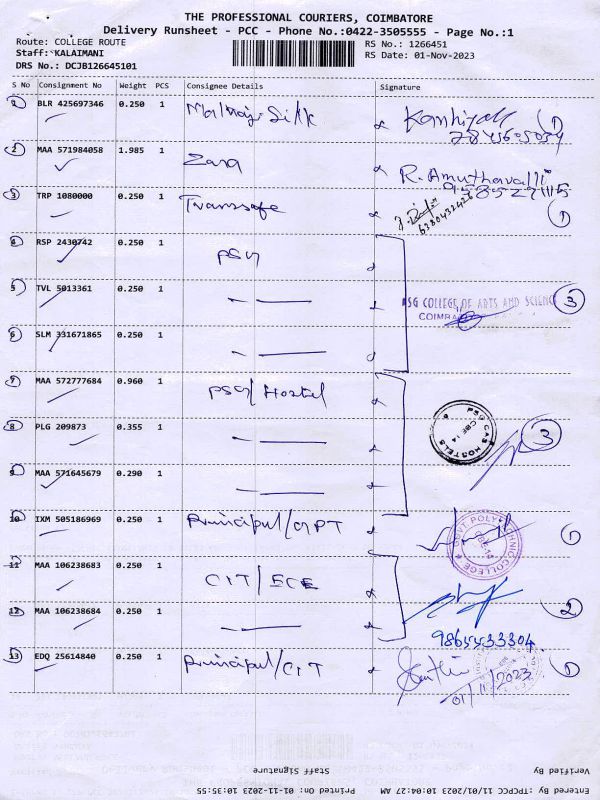 THE PROFESSIONAL COURIERS, COIMBATORE
Delivery Runsheet - PCC - Phone No.:0422-3505555 - Page No.:1
Route: COLLEGE ROUTE
RS No.: 1266451
Staff: KALAIMANI
RS Date: 01-Nov-2023
DRS No.: DCJB126645101
S No Consignment No Weight PCS Consignee Details Signature
2 BLR 425697346 0.250 1 Silk
MAA 571984058 1.985 1 Zara R. Amuthavalli
3 TRP 1080000 0.250 1 Transsafe 6380432426 1
4 RSP 2430742 0.250 1 PSG
5 TVL 5013361 0.250 1 — —— PSG COLLEGE OF ARTS AND SCIENCE 3
6 SLM 331671865 0.250 1 — ——
7 MAA 572777684 0.960 1 PSG/Hostel
8 PLG 209873 0.355 1 — —— PSG CAS HOSTELS CBE 14 3
9 MAA 571645679 0.290 1 — ——
10 IXM 505186969 0.250 1 Principal/GPT GOVT POLYTECHNIC COLLEGE CBE-14 1
11 MAA 106238683 0.250 1 CIT/ECE
12 MAA 106238684 0.250 1 — —— 2
13 EDQ 25614840 0.250 1 Principal/CIT 1
01/11/2023
Staff Signature
Verified By
Printed On: 01-11-2023 10:35:55
Entered By :TPCPCC 01/11/2023 10:04:27 AM